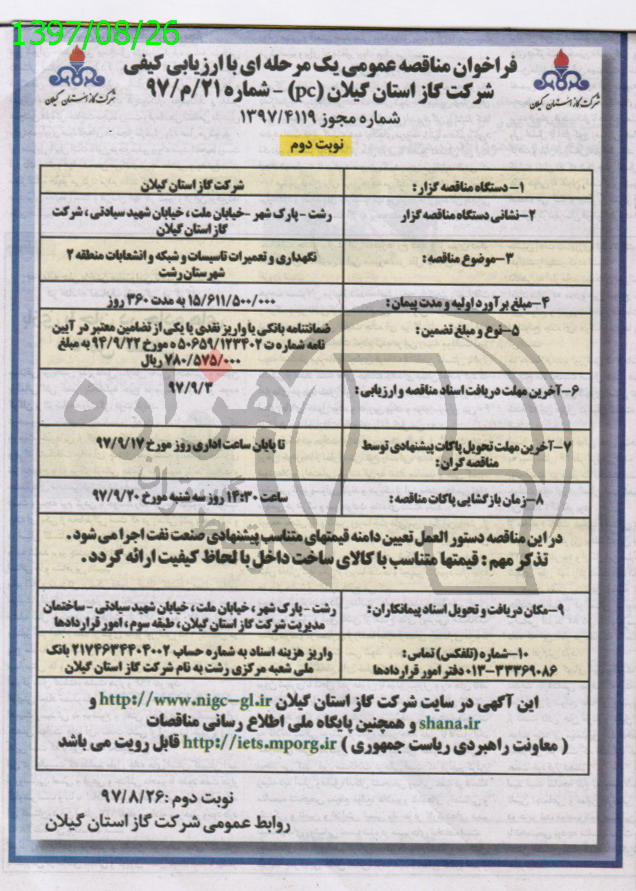 1397/08/26
فراخوان مناقصه عمومی یک مرحله ای با ارزیابی کیفی
شرکت گاز استان گیلان (pc) - شماره ۲۱/م/۹۷
شماره مجوز ۱۳۹۷/۴۱۱۹
نوبت دوم
شرکت گاز استان گیلان
شرکت گاز استان گیلان
۱- دستگاه مناقصه گزار :
شرکت گاز استان گیلان
۲- نشانی دستگاه مناقصه گزار
رشت - پارک شهر - خیابان ملت ، خیابان شهید سیادتی ، شرکت
گاز استان گیلان
۳- موضوع مناقصه :
نگهداری و تعمیرات تاسیسات و شبکه و انشعابات منطقه ۲
شهرستان رشت
۴- مبلغ برآورد اولیه و مدت پیمان :
۱۵/۶۱۱/۵۰۰/۰۰۰ به مدت ۳۶۰ روز
۵- نوع و مبلغ تضمین :
ضمانتنامه بانکی یا واریز نقدی یا یکی از تضامین معتبر در آیین
نامه شماره ۱۲۳۴۰۲/ت۵۰۶۵۹ ه مورخ ۹۴/۹/۲۲ به مبلغ
۷۸۰/۵۷۵/۰۰۰ ریال
۶- آخرین مهلت دریافت اسناد مناقصه و ارزیابی :
۹۷/۹/۳
۷- آخرین مهلت تحویل پاکات پیشنهادی توسط
مناقصه گران :
تا پایان ساعت اداری روز مورخ ۹۷/۹/۱۷
۸- زمان بازگشایی پاکات مناقصه :
ساعت ۱۴:۳۰ روز سه شنبه مورخ ۹۷/۹/۲۰
در این مناقصه دستور العمل تعیین دامنه قیمتهای متناسب پیشنهادی صنعت نفت اجرا می شود .
تذکر مهم : قیمتها متناسب با کالای ساخت داخل با لحاظ کیفیت ارائه گردد .
۹- مکان دریافت و تحویل اسناد پیمانکاران :
رشت - پارک شهر ، خیابان ملت ، خیابان شهید سیادتی - ساختمان
مدیریت شرکت گاز استان گیلان ، طبقه سوم ، امور قراردادها
۱۰- شماره (تلفکس) تماس :
۰۱۳-۳۳۳۶۹۰۸۶ دفتر امور قراردادها
واریز هزینه اسناد به شماره حساب ۲۱۷۴۶۳۴۴۰۴۰۰۲ بانک
ملی شعبه مرکزی رشت به نام شرکت گاز استان گیلان
این آگهی در سایت شرکت گاز استان گیلان http://www.nigc-gl.ir و
shana.ir و همچنین پایگاه ملی اطلاع رسانی مناقصات
( معاونت راهبردی ریاست جمهوری ) http://iets.mporg.ir قابل رویت می باشد
نوبت دوم : ۹۷/۸/۲۶
روابط عمومی شرکت گاز استان گیلان
هزاره